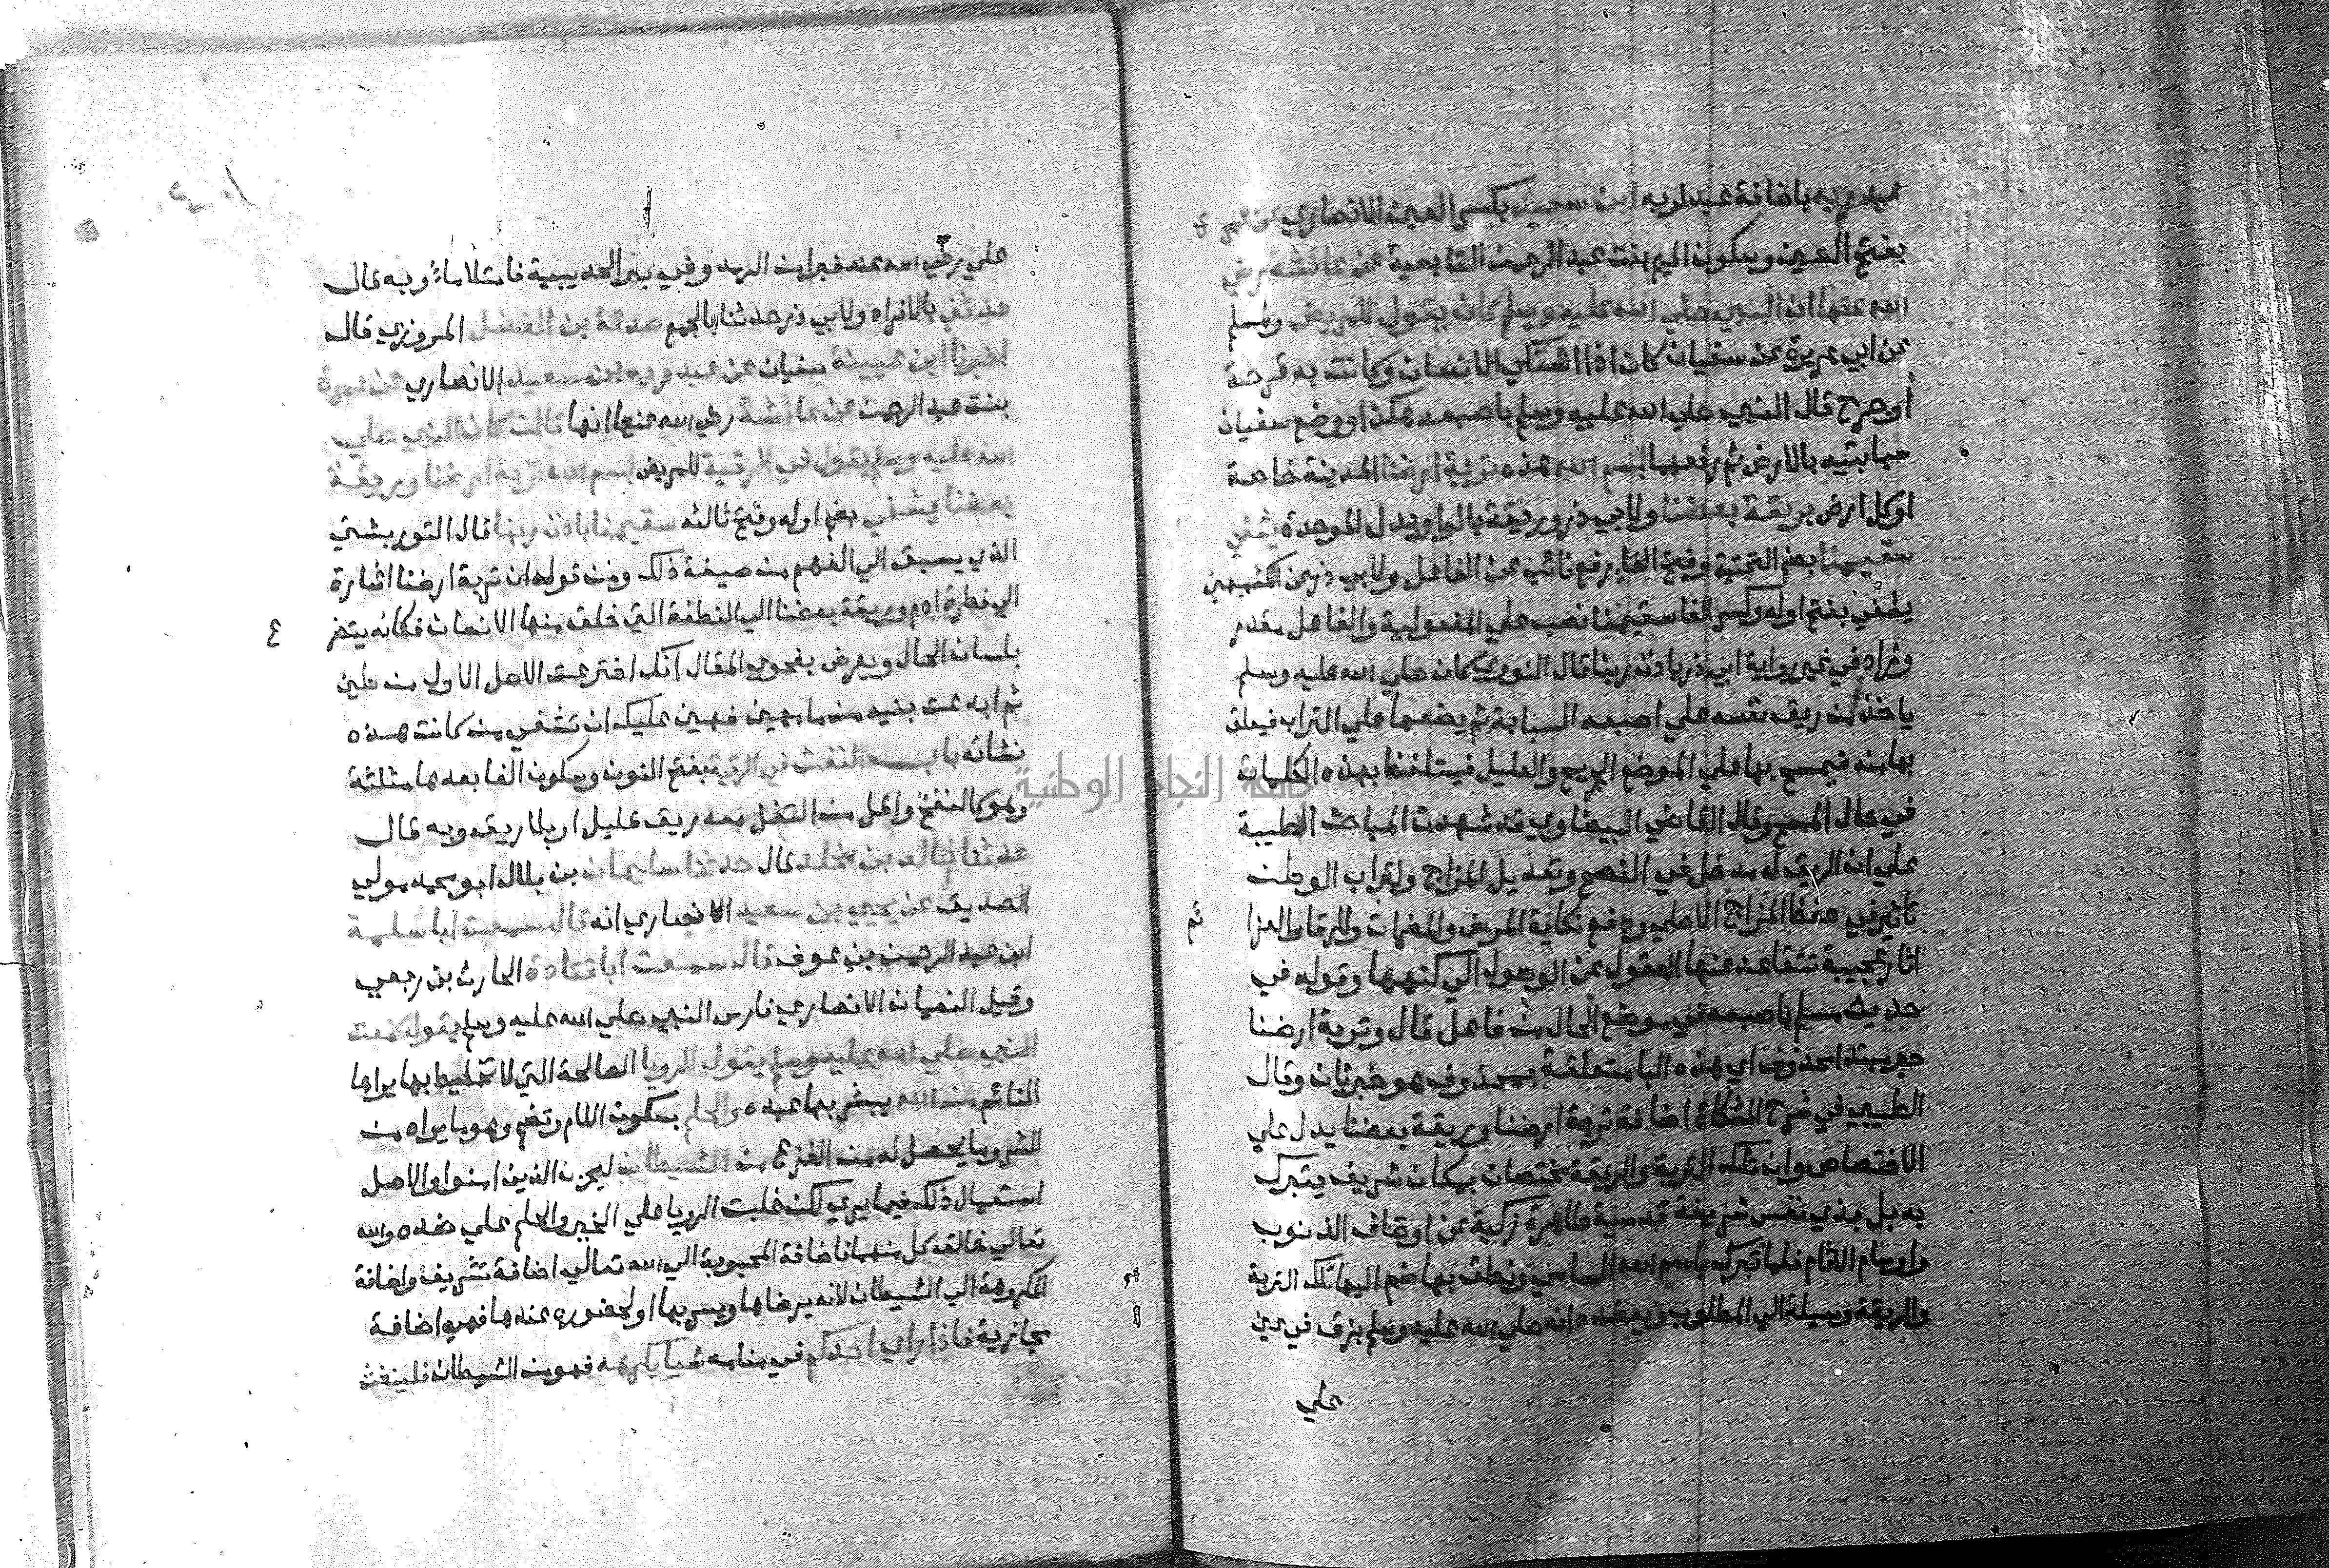 عبد ربه باضافة عبد لربه ابن سعيد بكسر العين الانصاري عن عمرة
بفتح العين وسكون الميم بنت عبد الرحمن التابعية عن عائشة رضي
الله عنها ان النبي صلي الله عليه وسلم كان يقول للمريض ولمسلم
عن ابي عمر عن سفيان كان اذا اشتكي الانسان وكانت به قرحة
أو جرح قال النبي صلي الله عليه وسلم باصبعه هكذا ووضع سفيان
سبابتيه بالارض ثم رفعها بسم الله هذه تربة ارضنا المدينة خاصة
او كل ارض بريقة بعضنا ولابي ذر وريقة بالواو بدل الموحدة يشفي
سقيمنا بضم التحتية وفتح الفاء رفع نائب عن الفاعل ولابي ذر عن الكشميهني
يشفي بفتح اوله وكسر الفا سقيمنا نصب علي المفعولية والفاعل مقدر
وزاد في غير رواية ابي ذر باذن ربنا قال النووي كان صلي الله عليه وسلم
ياخذ من ريق نفسه علي اصبعه السبابة ثم يضعها علي التراب فيعلق
بها منه فيمسح بها علي الموضع الجريح والعليل فيتلفظ بهذه الكلمات
في حال المسح وقال القاضي البيضاوي قد شهدت المباحث الطبية
علي ان الريق له مدخل في النضج وتعديل المزاج ولتراب الوطن
تاثير في حفظ المزاج الاصلي ودفع نكاية المريض والمضرات والرقا والعزا
ثم
اثار عجيبة تتقاعد عنها العقول عن الوصول الي كنهها وقوله في
حديث مسلم باصبعه في موضع الحال من فاعل قال وتربة ارضنا
خبر مبتدا محذوف اي هذه البا متعلقة بمحذوف هو خبر ثان وقال
الطيبي في شرح المشكاة اضافة تربة ارضنا وريقة بعضنا يدل علي
الاختصاص وان تلك التربة والريقة مختصان بمكان شريف يتبرك
به بل بذي نفس شريفة قدسية طاهرة زكية عن اوصاف الذنوب
واوصام الاثام فلما تبرك باسم الله السامي ونطق بها ضم اليها تلك التربة
والريقة وسيلة الي المطلوب ويعضده انه صلي الله عليه وسلم بزق في عين
علي
علي رضي الله عنه فبرا من الرمد وفي بير الحديبية فامتلا ماءً وبه قال
حدثني بالافراد ولابي ذر حدثنا بالجمع صدقة بن الفضل المروزي قال
اخبرنا ابن عيينة سفيان عن عبد ربه بن سعيد الانصاري عن عمرة
بنت عبد الرحمن عن عائشة رضي الله عنها انها قالت كان النبي صلي
الله عليه وسلم يقول في الرقية للمريض بسم الله تربة ارضنا وريقة
بعضنا يشفي بضم اوله وفتح ثالثه سقيمنا باذن ربنا قال التوربشتي
الذي يسبق الي الفهم من صيغة ذلك ومن قوله ان تربة ارضنا اشارة
الي فطرة ادم وريقة بعضنا الي النطفة التي خلق منها الانسان فكانه يتضر
ع
بلسان الحال ويعرض بفحوي المقال انك اخترعت الاصل الاول من طين
ثم ابدعت بنيه من ما مهين فهين عليك ان تشفي من كانت هذه
نشاته باب النفث في الرقية بفتح النون وسكون الفا بعدها مثلثة
وهو كالنفخ واقل من التفل معه ريق قليل او بلا ريق وبه قال
حدثنا خالد بن مخلد قال حدثنا سليمان بن بلال ابو محمد مولي
الصديق عن يحيي بن سعيد الانصاري انه قال سمعت ابا سلمة
ابن عبد الرحمن بن عوف قال سمعت ابا قتادة الحارث بن ربعي
وقيل النعمان الانصاري فارس النبي صلي الله عليه وسلم يقول سمعت
النبي صلي الله عليه وسلم يقول الرويا الصالحة التي لا تخليط بها يراها
النائم من الله يبشر بها عبده والحلم بسكون اللام وتضم وهو ما يراه من
الشر وما يحصل له من الفزع من الشيطان ليحزن الذين امنوا والاصل
استعمال ذلك فيما يري لكن غلبت الرويا علي الخير والحلم علي ضده والله
تعالي خالق كل منهما فاضافة المحبوبة الي الله تعالي اضافة تشريف واضافة
المكروهة الي الشيطان لانه يرضاها ويسر بها او لحضوره عندها فهو اضافة
مجازية فاذا راي احدكم في منامه شيا يكرهه فهو من الشيطان فلينفث
جامعة النجاح الوطنية